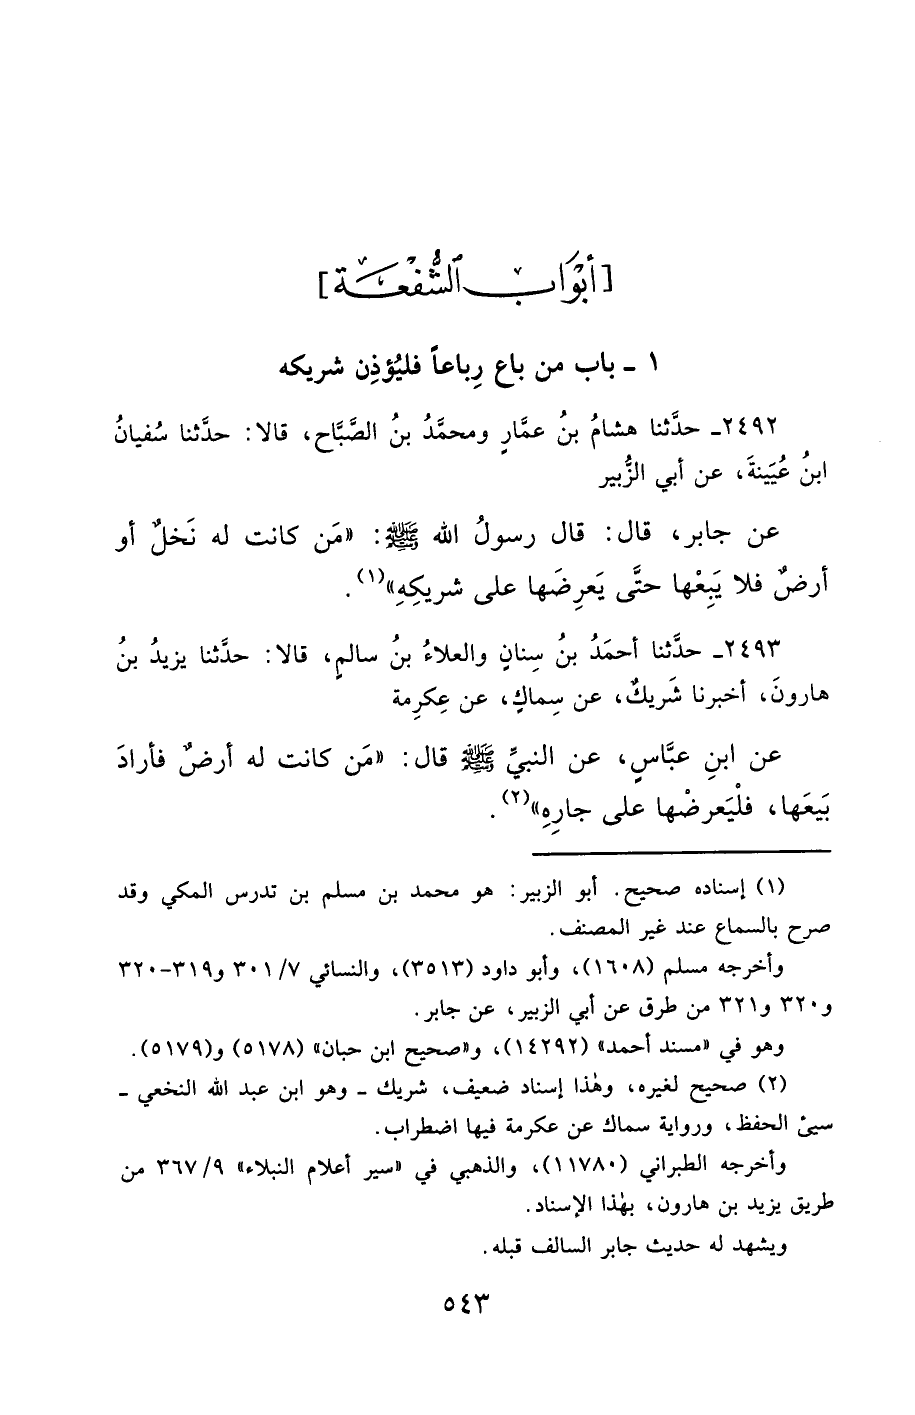 [أبْوَابُ الشُّفْعَة]
١ ـ باب من باع رِباعاً فليُؤذِن شريكه
٢٤٩٢ـ حدَّثنا هشامُ بنُ عمَّارٍ ومحمَّدُ بنُ الصَّبَّاح، قالا: حدَّثنا سُفيانُ
ابنُ عُيَينةَ، عن أبي الزُّبير
عن جابر، قال: قال رسولُ الله ﷺ: «مَن كانت له نَخلٌ أو
أرضٌ فلا يَبِعْها حتَّى يَعرِضَها على شريكِهِ»(١).
٢٤٩٣ـ حدَّثنا أحمَدُ بنُ سِنانٍ والعلاءُ بنُ سالمٍ، قالا: حدَّثنا يزيدُ بنُ
هارونَ، أخبرنا شَريكٌ، عن سِماكٍ، عن عِكرِمة
عن ابنِ عبَّاسٍ، عن النبيِّ ﷺ قال: «مَن كانت له أرضٌ فأرادَ
بَيعَها، فلْيَعرضْها على جارِهِ»(٢).
(١) إسناده صحيح. أبو الزبير: هو محمد بن مسلم بن تدرس المكي وقد
صرح بالسماع عند غير المصنف.
وأخرجه مسلم (١٦٠٨)، وأبو داود (٣٥١٣)، والنسائي ٣٠١/٧ و٣١٩-٣٢٠
و٣٢٠ و٣٢١ من طرق عن أبي الزبير، عن جابر.
وهو في «مسند أحمد» (١٤٢٩٢)، و«صحيح ابن حبان» (٥١٧٨) و(٥١٧٩).
(٢) صحيح لغيره، وهٰذا إسناد ضعيف، شريك ـ وهو ابن عبد الله النخعي ـ
سيئ الحفظ، ورواية سماك عن عكرمة فيها اضطراب.
وأخرجه الطبراني (١١٧٨٠)، والذهبي في «سير أعلام النبلاء» ٣٦٧/٩ من
طريق يزيد بن هارون، بهٰذا الإسناد.
ويشهد له حديث جابر السالف قبله.
٥٤٣